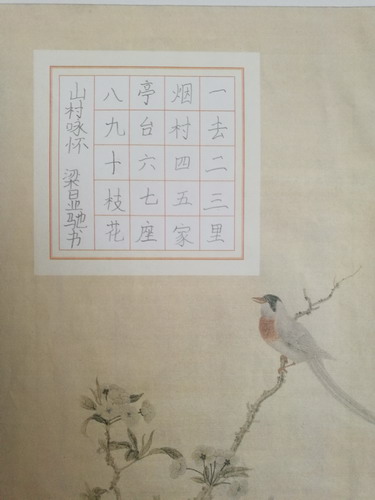 一去二三里
烟村四五家
亭台六七座
八九十枝花
山村咏怀 梁显驰书